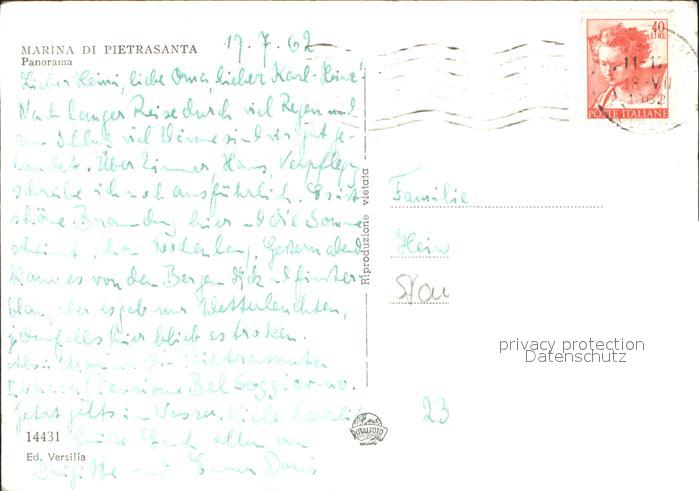 MARINA DI PIETRASANTA
Panorama
17.7.62
Lieber Heini, liebe Oma, lieber Karl-Heinz!
Nach langer Reise durch viel Regen und
zum Schluß viel Wärme sind wir gut ge-
landet. Über Zimmer, Haus, Verpfleg.
schreibe ich noch ausführlich. Es ist
schöne Brandung hier und die Sonne
scheint schon wochenlang. Gestern abend
kam es von den Bergen dick und finster
blau, aber es gab nur Wetterleuchten,
jedenfalls hier blieb es trocken.
Abs.: Marina di Pietrasanta
[Lucca] Pensione Bel Soggiorno.
Jetzt geht's in Wasser. Viele herzlich
Grüße Euch allen von
Brigitte und Doris
14431
Ed. Versilia
Riproduzione vietata
ITALFOTO
40
LIRE
POSTE ITALIANE
18-VII
1962
Familie
Hein
23
privacy protection
Datenschutz